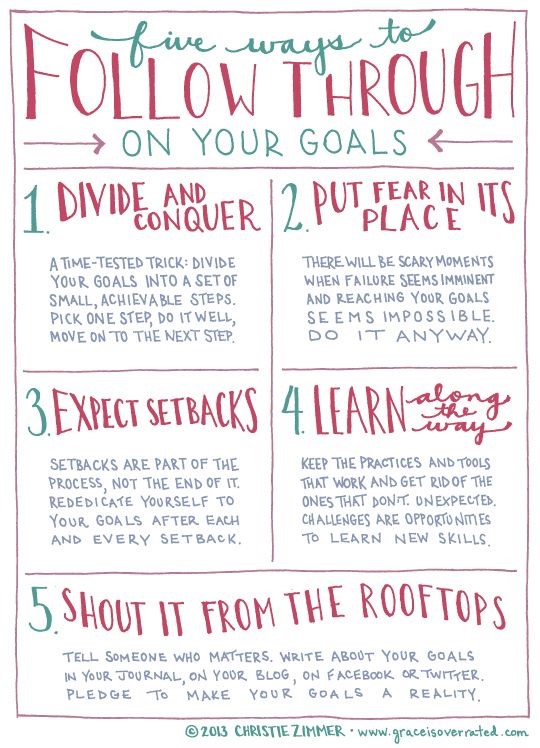 five ways to
FOLLOW THROUGH
ON YOUR GOALS
1. DIVIDE AND
CONQUER
A TIME-TESTED TRICK: DIVIDE
YOUR GOALS INTO A SET OF
SMALL, ACHIEVABLE STEPS.
PICK ONE STEP, DO IT WELL,
MOVE ON TO THE NEXT STEP.
2. PUT FEAR IN ITS
PLACE
THERE WILL BE SCARY MOMENTS
WHEN FAILURE SEEMS IMMINENT
AND REACHING YOUR GOALS
SEEMS IMPOSSIBLE.
DO IT ANYWAY.
3. EXPECT SETBACKS
SETBACKS ARE PART OF THE
PROCESS, NOT THE END OF IT.
REDEDICATE YOURSELF TO
YOUR GOALS AFTER EACH
AND EVERY SETBACK.
4. LEARN along
the
way
KEEP THE PRACTICES AND TOOLS
THAT WORK AND GET RID OF THE
ONES THAT DON'T. UNEXPECTED.
CHALLENGES ARE OPPORTUNITIES
TO LEARN NEW SKILLS.
5. SHOUT IT FROM THE ROOFTOPS
TELL SOMEONE WHO MATTERS. WRITE ABOUT YOUR GOALS
IN YOUR JOURNAL, ON YOUR BLOG, ON FACEBOOK OR TWITTER.
PLEDGE TO MAKE YOUR GOALS A REALITY.
© 2013 CHRISTIE ZIMMER • www.graceisoverrated.com